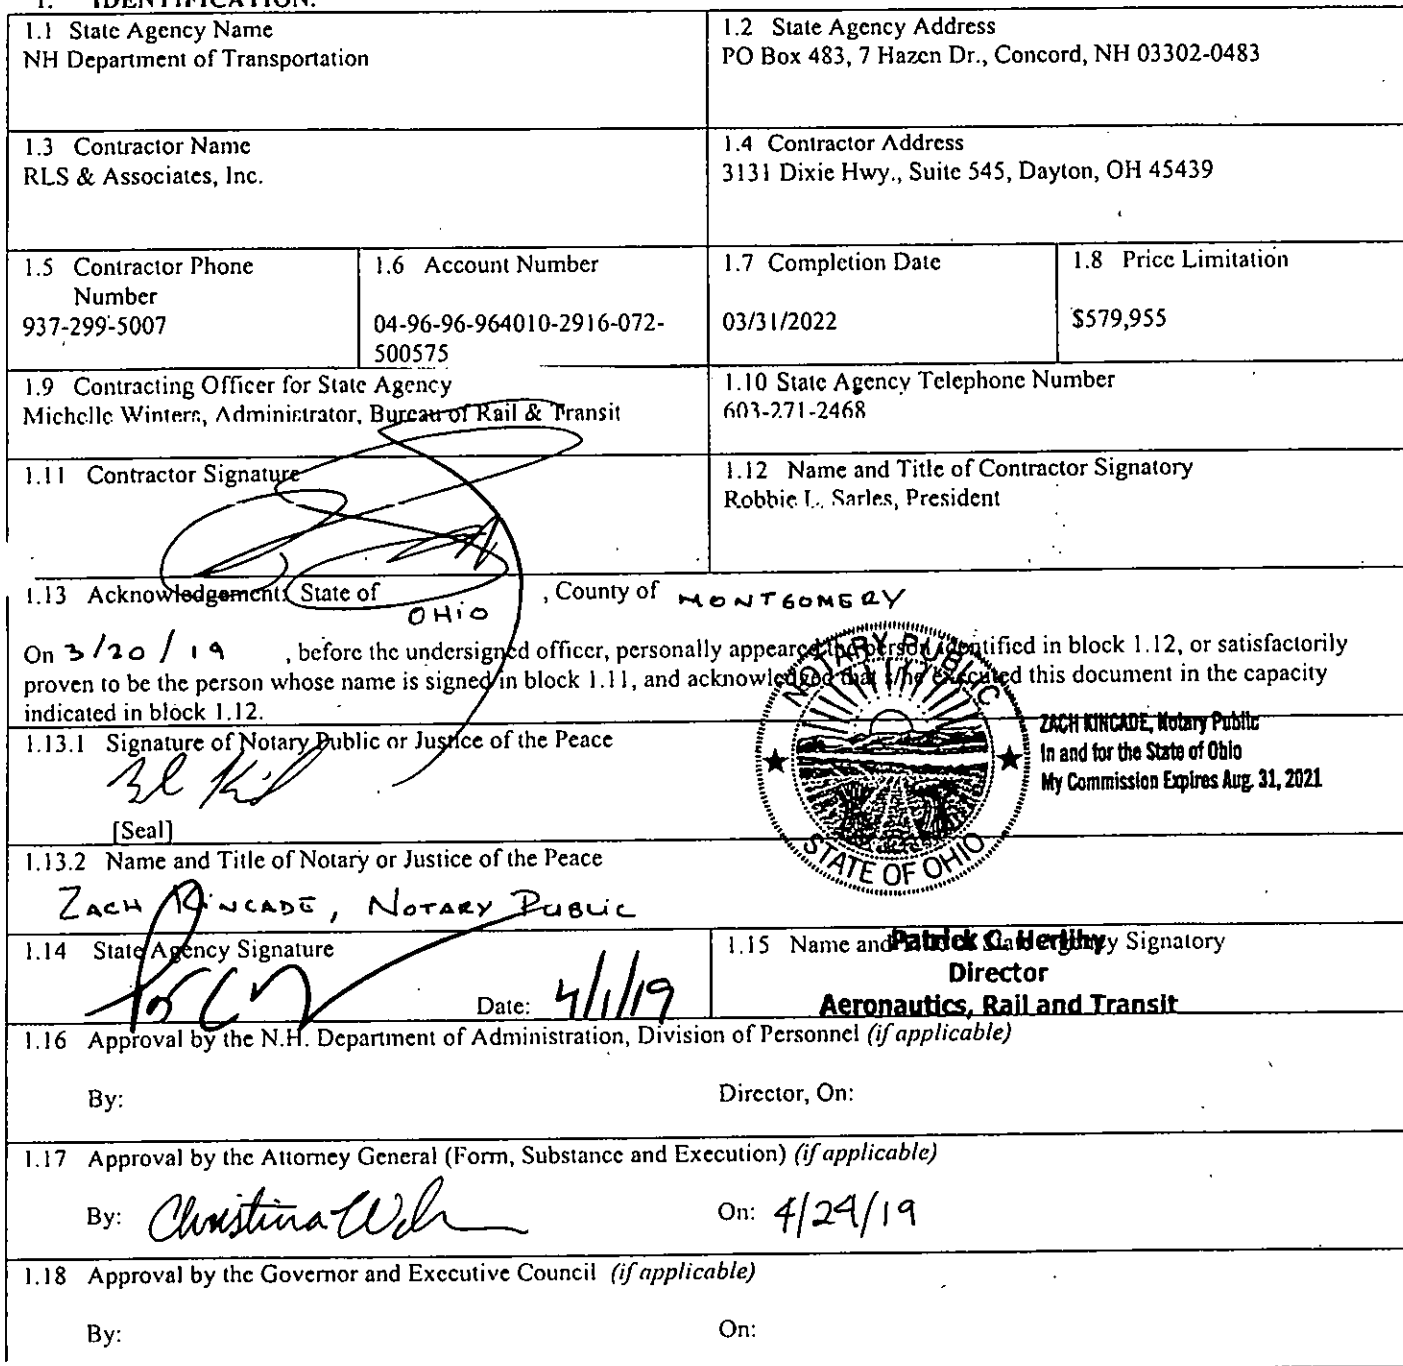 1. IDENTIFICATION.
1.1 State Agency Name
NH Department of Transportation
1.2 State Agency Address
PO Box 483, 7 Hazen Dr., Concord, NH 03302-0483
1.3 Contractor Name
RLS & Associates, Inc.
1.4 Contractor Address
3131 Dixie Hwy., Suite 545, Dayton, OH 45439
1.5 Contractor Phone
Number
937-299-5007
1.6 Account Number
04-96-96-964010-2916-072-
500575
1.7 Completion Date
03/31/2022
1.8 Price Limitation
$579,955
1.9 Contracting Officer for State Agency
Michelle Winters, Administrator, Bureau of Rail & Transit
1.10 State Agency Telephone Number
603-271-2468
1.11 Contractor Signature
1.12 Name and Title of Contractor Signatory
Robbie L. Sarles, President
1.13 Acknowledgement: State of OHiO , County of MONTGOMERY
On 3/20/19 , before the undersigned officer, personally appeared the person identified in block 1.12, or satisfactorily
proven to be the person whose name is signed in block 1.11, and acknowledged that s/he executed this document in the capacity
indicated in block 1.12.
1.13.1 Signature of Notary Public or Justice of the Peace
[Seal]
NOTARY PUBLIC
STATE OF OHIO
ZACH KINCADE, Notary Public
In and for the State of Ohio
My Commission Expires Aug. 31, 2021
1.13.2 Name and Title of Notary or Justice of the Peace
ZACH KINCADE, NOTARY PUBLIC
1.14 State Agency Signature
Date: 4/1/19
1.15 Name and State Agency Signatory
Patrick C. Herlihy
Director
Aeronautics, Rail and Transit
1.16 Approval by the N.H. Department of Administration, Division of Personnel (if applicable)
By:
Director, On:
1.17 Approval by the Attorney General (Form, Substance and Execution) (if applicable)
By: Christina
On: 4/24/19
1.18 Approval by the Governor and Executive Council (if applicable)
By:
On: